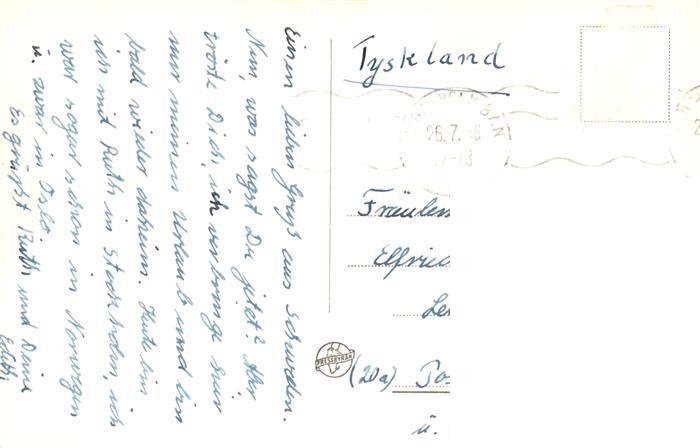 Einen lieben Gruß aus Schweden.
Nun, was sagst Du jetzt? Aber
tröste Dich, ich verbringe hier
nur meinen Urlaub und bin
bald wieder daheim. Heute bin
ich mit Ruth in Stockholm, ich
war sogar schon in Norwegen
u. zwar in Oslo.
Es grüßt Ruth und Deine
Edith
Tyskland
26.7.
17-18
Fräulein
Elfried
(20a)
ü.
PRESSBYRÅN